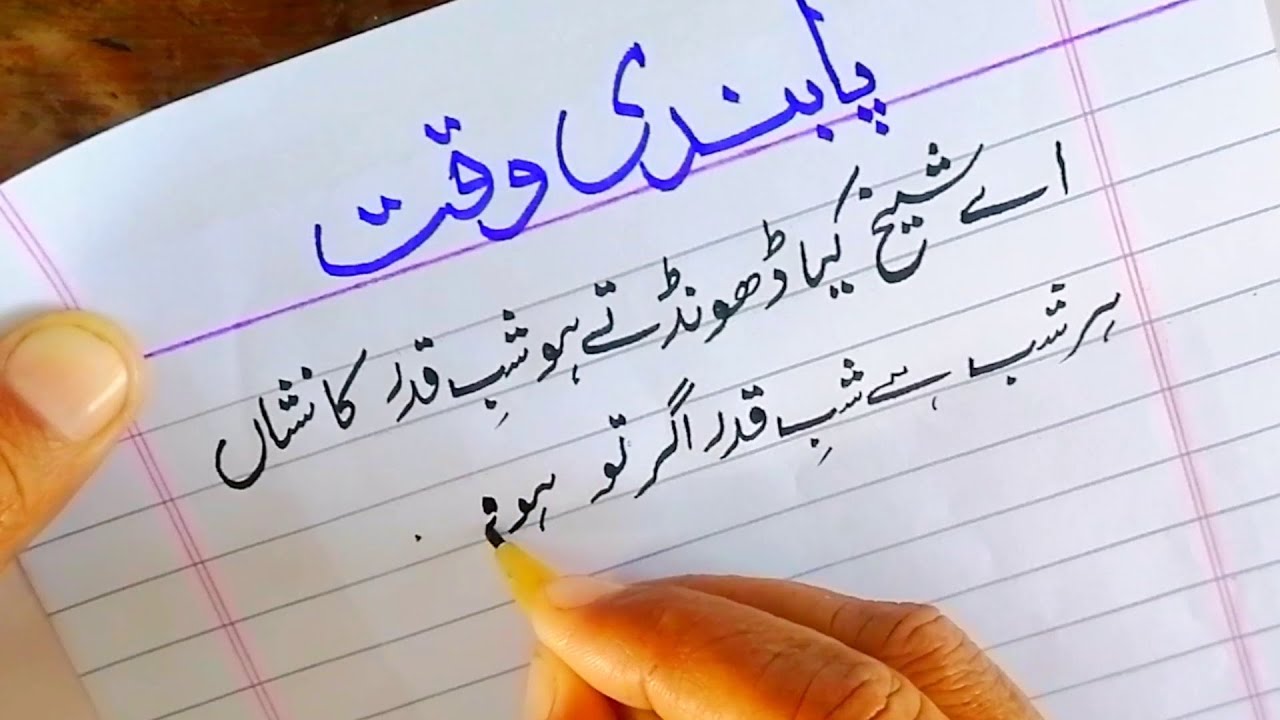 پابندی وقت
اے شیخ کیا ڈھونڈتے ہو شبِ قدر کا نشاں
ہر شب ہے شبِ قدر اگر تو ہو